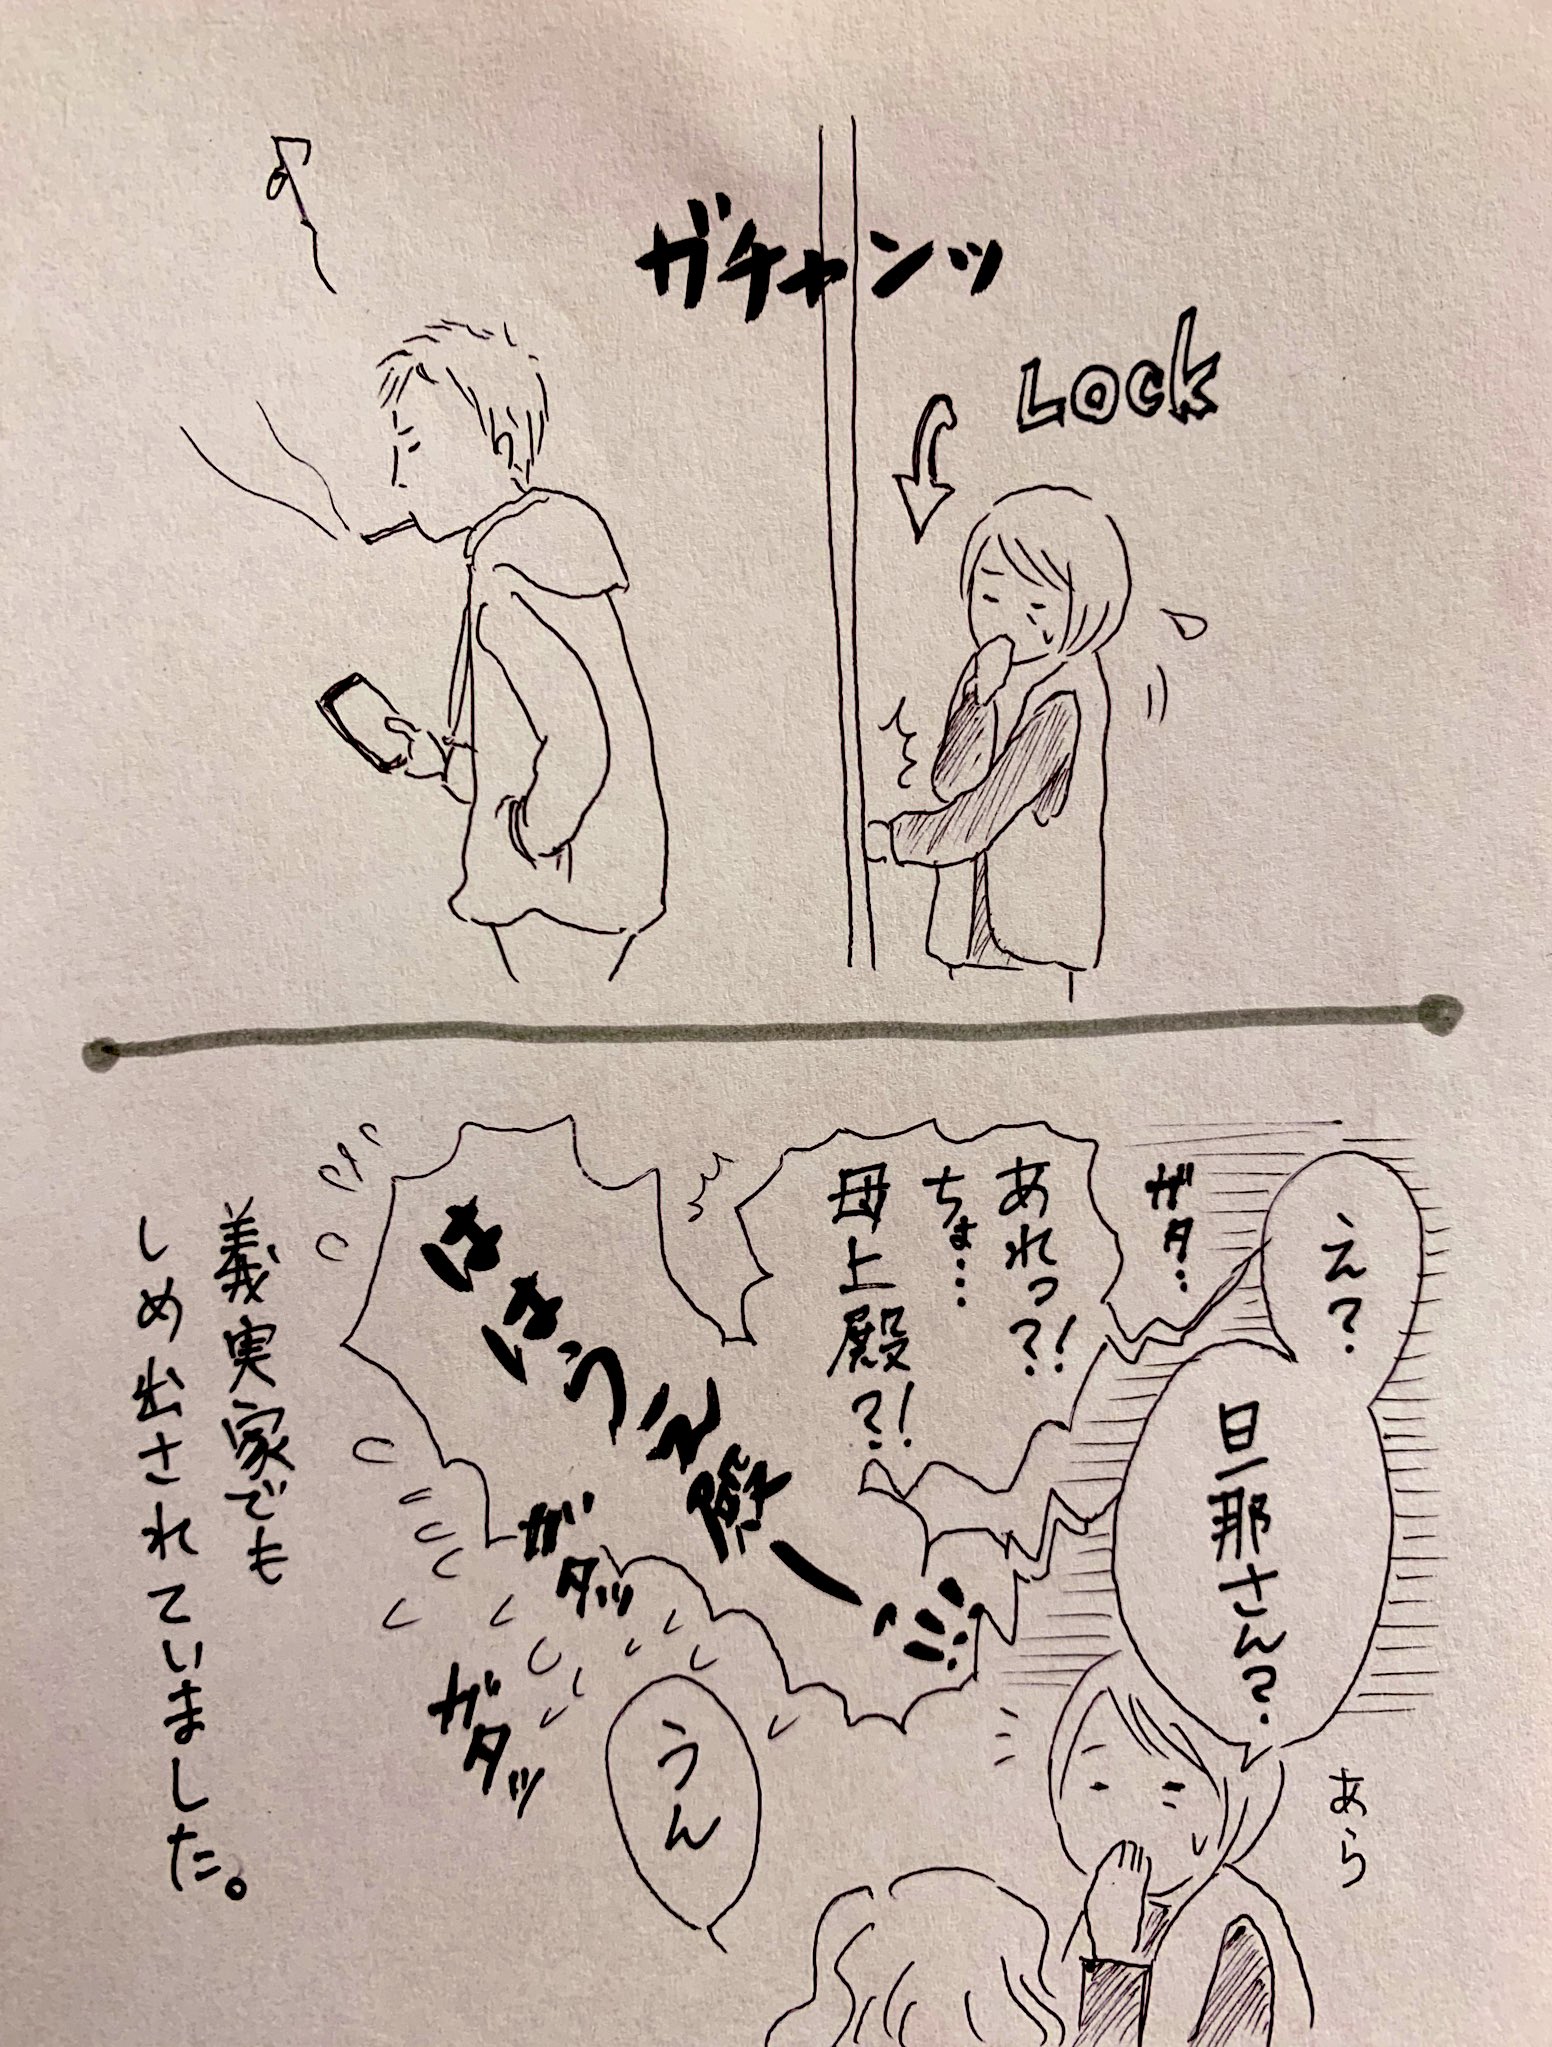 ガチャンッ
LOCK
え?
旦那さん?
あら
ガタ…
あれっ?!
ちょ…
母上殿?!
ははうえ殿ー
ガタッ
ガタッ
うん
義実家でも
しめ出されていました。